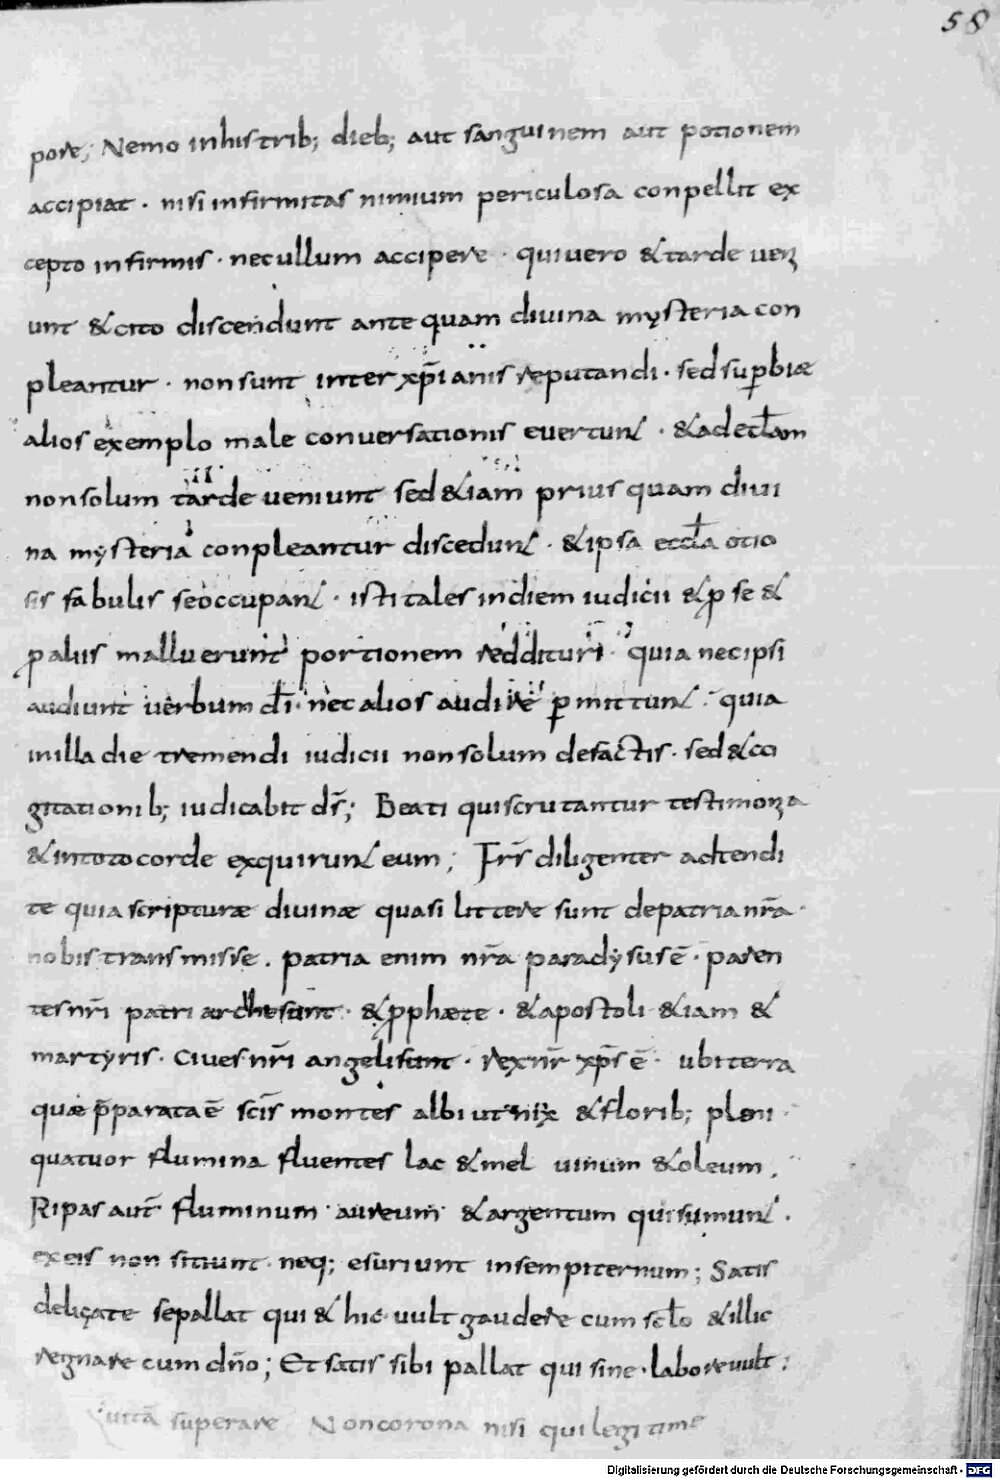 58
pore; Nemo inhistrib; dieb; aut sanguinem aut potionem
accipiat · nisi infirmitas nimium periculosa conpellit ex
cepto infirmis · necullum accipere · quivero &tarde veni
unt &cito discendunt ante quam divina mysteria con
pleantur · non sunt inter xp̄ianis reputandi · sed sup̱biæ
alios exemplo male conversationis evertunt · &adecl̄am
non solum tarde veniunt sed &iam prius quam divi
na mysteria conpleantur discedunt · &ipsa eccl̄a otio
sis fabulis seoccupant · isti tales indiem iudicii &p̱ se &
p̱ aliis malluerunt portionem reddituri · quia necipsi
audiunt verbum dī · nec alios audire p̱mittunt · quia
inilla die tremendi iudicii non solum defactis · sed &co
gitationib; iudicabit ds̄; Beati quiscrutantur testimonia
&intoto corde exquirunt eum; Frs̄ diligenter adtendi
te quia scripturæ divinæ quasi littere sunt depatria nr̄a ·
nobis transmisse . patria enim nr̄a paradysus ē · paren
tes nr̄i patriarche sunt · &p̱phæte · &apostoli &iam &
martyris · Cives nr̄i angeli sunt · rex nr̄ xp̄s ē · ubi terra
quæ p̄parata ē scīs montes albi ut nix &florib; pleni ·
quatuor flumina fluentes lac &mel vinum &oleum .
Ripas aut̄ fluminum aureum &argentum qui sumunt .
exeis non sitiunt neq; esuriunt insempiternum; Satis
delicate sepallat qui & hic vult gaudere cum scl̄o &illic
regnare cum dn̄o; Et satis sibi pallat qui sine labore vult;
superare Non corona nisi qui legitime
Digitalisierung gefördert durch die Deutsche Forschungsgemeinschaft - DFG